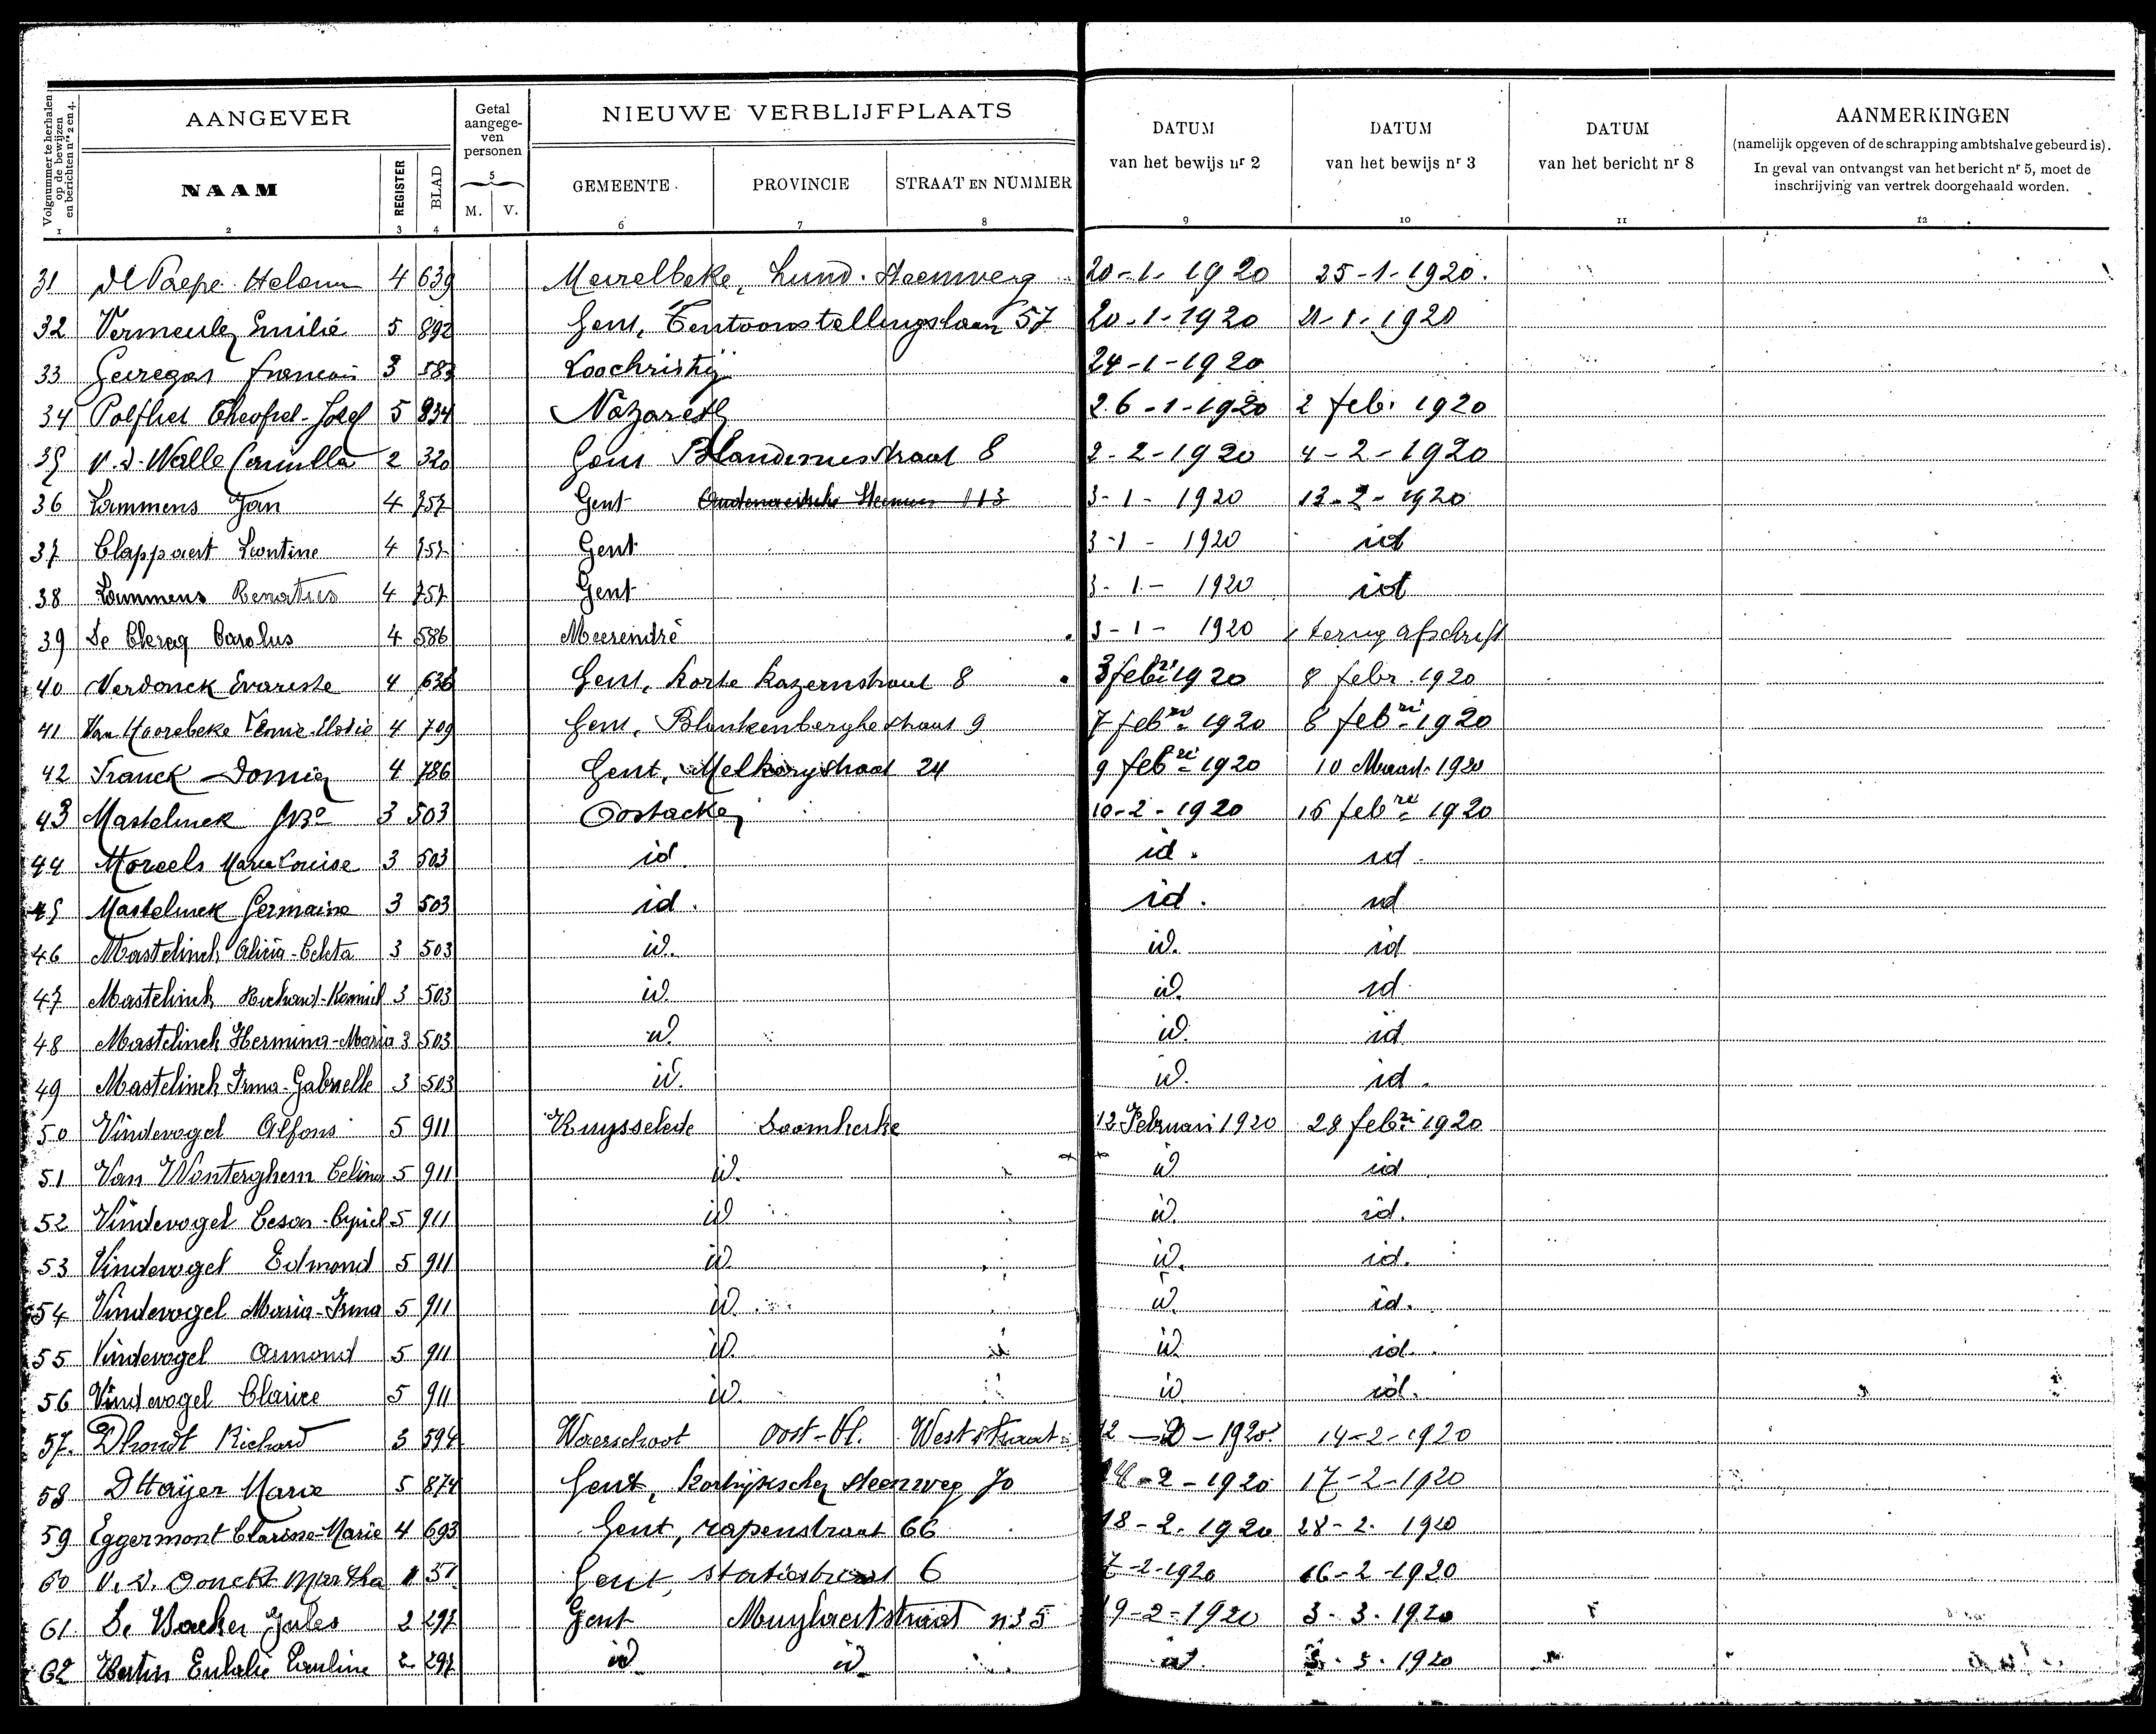 Volgnummer te herhalen op de bewijzen en berichten nrs 2 en 4.
AANGEVER
Getal aangege-ven personen
NIEUWE VERBLIJFPLAATS
DATUM van het bewijs nr 2
DATUM van het bewijs nr 3
DATUM van het bericht nr 8
AANMERKINGEN
(namelijk opgeven of de schrapping ambtshalve gebeurd is).
In geval van ontvangst van het bericht nr 5, moet de
inschrijving van vertrek doorgehaald worden.
NAAM REGISTER BLAD 5 M. V. GEMEENTE. PROVINCIE STRAAT EN NUMMER
1 2 3 4 6 7 8 9 10 11 12
31 De Paepe Helena 4 639 Meirelbeke, Lund. Steenweg 20-1-1920 25-1-1920.
32 Vermeulen Emilié 5 892 Gent, Tentoonstellingslaan 57 20-1-1920 21-1-1920
33 Geiregas francois 3 583 Loochristij 24-1-1920
34 Polfliet Theofiel-Josef 5 834 Nazareth 26-1-1920 2 feb. 1920
35 V. d. Walle Camilla 2 320 Gent Blandinusstraat 8 2-2-1920 4-2-1920
36 Lammens Jan 4 757 Gent 113 3-1-1920 13-2-1920
37 Clappaert Leontine 4 757 Gent 3-1-1920 id
38 Lammens Renatus 4 757 Gent 3-1-1920 id
39 De Clercq Carolus 4 586 Meerendré 3-1-1920 terug afschrift
40 Verdonck Evariste 4 636 Gent, Korte Kazernstraat 8 3 febri 1920 8 febr. 1920
41 Van Hoorebeke Elodie 4 709 Gent, Blankenberghestraat 9 7 febri 1920 8 febri 1920
42 Franck Domien 4 786 Gent, straat 24 9 febri 1920 10 Maart 1920
43 Mastelinck 3 503 Oostacker 10-2-1920 16 febri 1920
44 Morcels Marie Louise 3 503 id. id. id.
45 Mastelinck Germaine 3 503 id. id. id
46 Mastelinck Alicia-Celeta 3 503 id. id. id
47 Mastelinck Richard-Kamiel 3 503 id. id. id.
48 Mastelinck Hermina-Maria 3 503 id. id. id.
49 Mastelinck Irma-Gabrielle 3 503 id. id. id.
50 Vindevogel Alfons 5 911 Ruysselede Doomkerke 12 Februari 1920 28 febri 1920
51 Van Wonterghem Celina 5 911 id. id id
52 Vindevogel Cesar-Cyriel 5 911 id id. id.
53 Vindevogel Edmond 5 911 id. id. id.
54 Vindevogel Maria-Irma 5 911 id. id. id.
55 Vindevogel Osmond 5 911 id. id. id.
56 Vindevogel Clarice 5 911 id. id id.
57. Dhondt Richard 3 594 Waerschoot Oost-Vl. Weststraat 12-2-1920 14-2-1920
58 DHayer Marie 5 874 Gent, Kortrijkschen steenweg 70 14-2-1920 17-2-1920
59 Eggermont Clarisse-Marie 4 693 Gent, rapenstraat 66 18-2-1920 28-2-1920
60 V. d. Donckt Martha 1 51 Gent, statiestraat 6 7-2-1920 16-2-1920
61. De Backer Jules 2 297 Gent Muylaertstraat n35 19-2-1920 3-3-1920
62 Bertin Eulalie Pauline 2 297 id id id. 3-3-1920